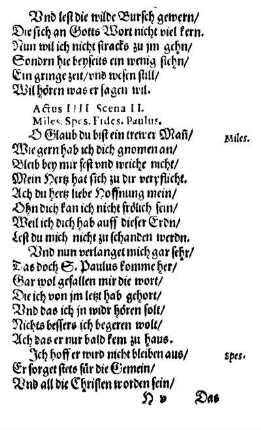 Vnd lest die wilde Bursch gewern/
Die sich an Gotts Wort nicht viel kern.
Nun wil ich nicht stracks zu jm gehn/
Sondrn hie beyseits ein wenig stehn/
Ein gringe zeit/vnd wesen still/
Wil hören was er sagen wil.
Actus IIII Scena II.
Miles. Spes. Fides. Paulus.
O Glaub du bist ein trewer Mañ/ Miles.
Wie gern hab ich dich gnomen an/
Bleib bey mir fest vnd weiche nicht/
Mein Hertz hat sich zu dir verpflicht.
Ach du hertz liebe Hoffnung mein/
Ohn dich kan ich nicht frölich sein/
Weil ich dich hab auff dieser Erdn/
Lest du mich nicht zu schanden werdn.
Vnd nun verlanget mich gar sehr/
Das doch S. Paulus komme her/
Gar wol gefallen mir die wort/
Die ich von jm letzt hab gehort/
Vnd das ich jn widr hören solt/
Nichts bessers ich begeren wolt/
Ach das er nur bald kem zu haus.
Ich hoff er wird nicht bleiben aus/ Spes.
Er sorget stets für die Gemein/
Vnd all die Christen worden sein/
H v Das